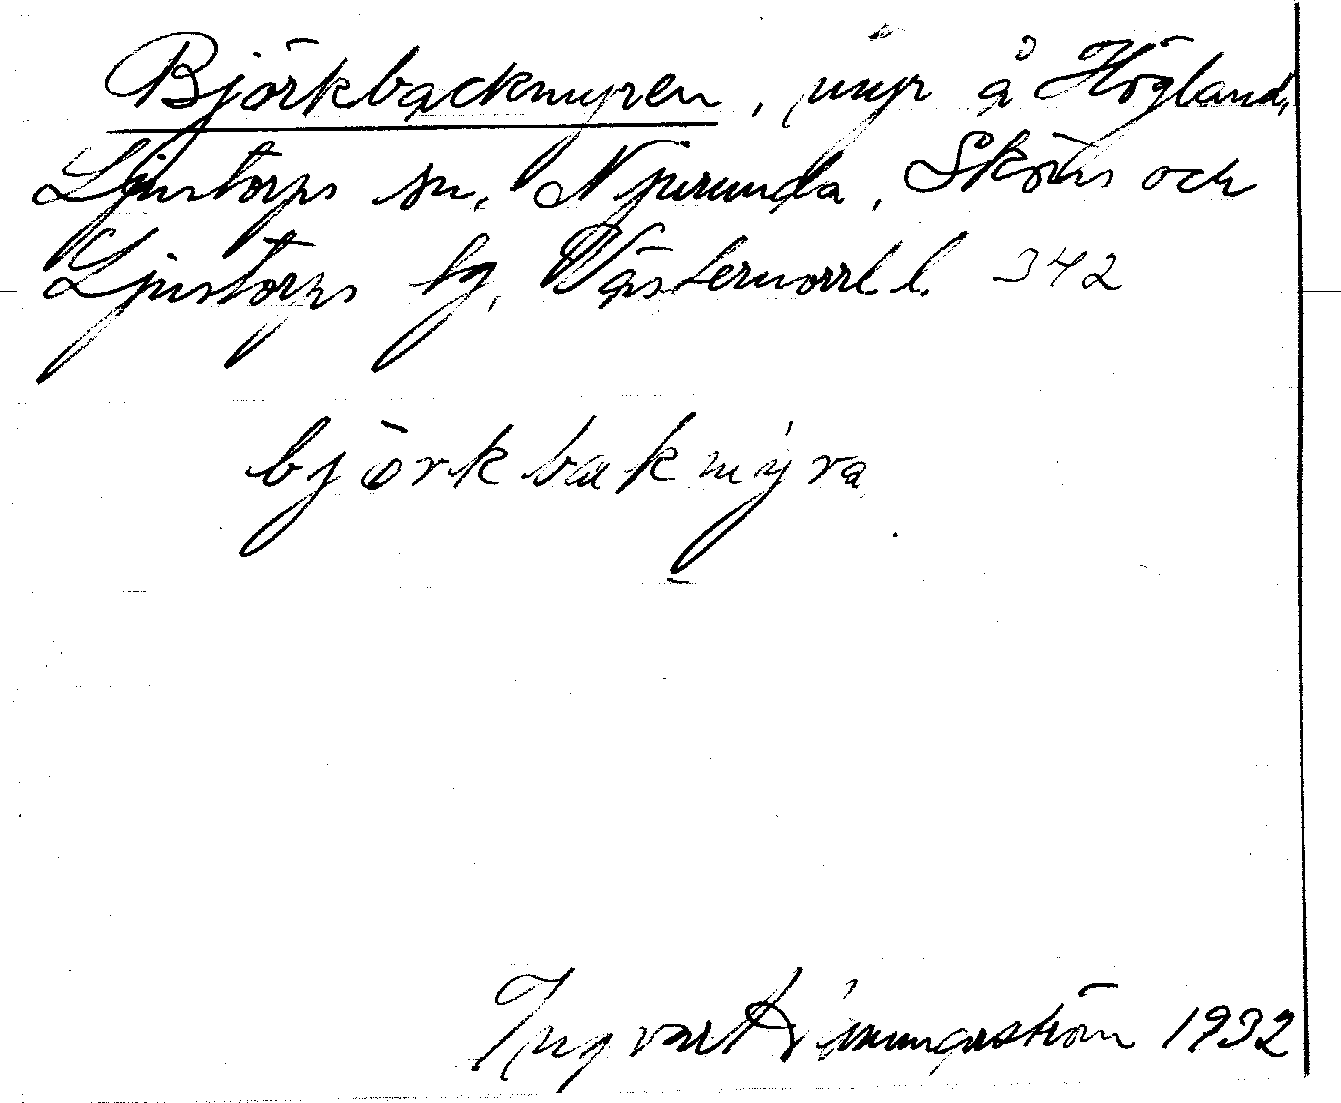 Björkbackmyren, myr å Högland,
Ljustorps sn, Njurunda, Sköns och
Ljustorps tg, Västernorrl. l. 342
björkbakmýra
Ingvar 1932